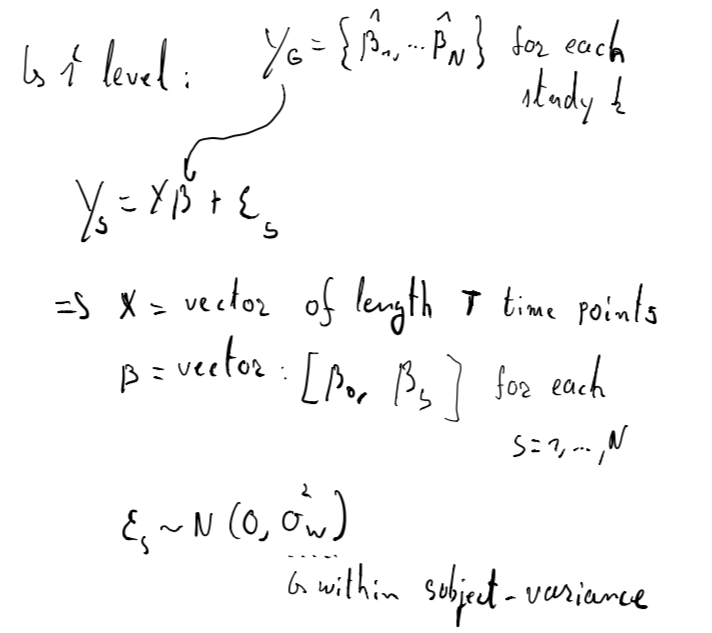 ↳ 1 level: Y_G = {β̂_1, ... β̂_N} for each
study k
Y_s = Xβ + ε_s
=> X = vector of length T time points
β = vector: [β_0, β_s] for each
s=1,...,N
ε_s ~ N(0, σ_w^2)
↳ within subject-variance